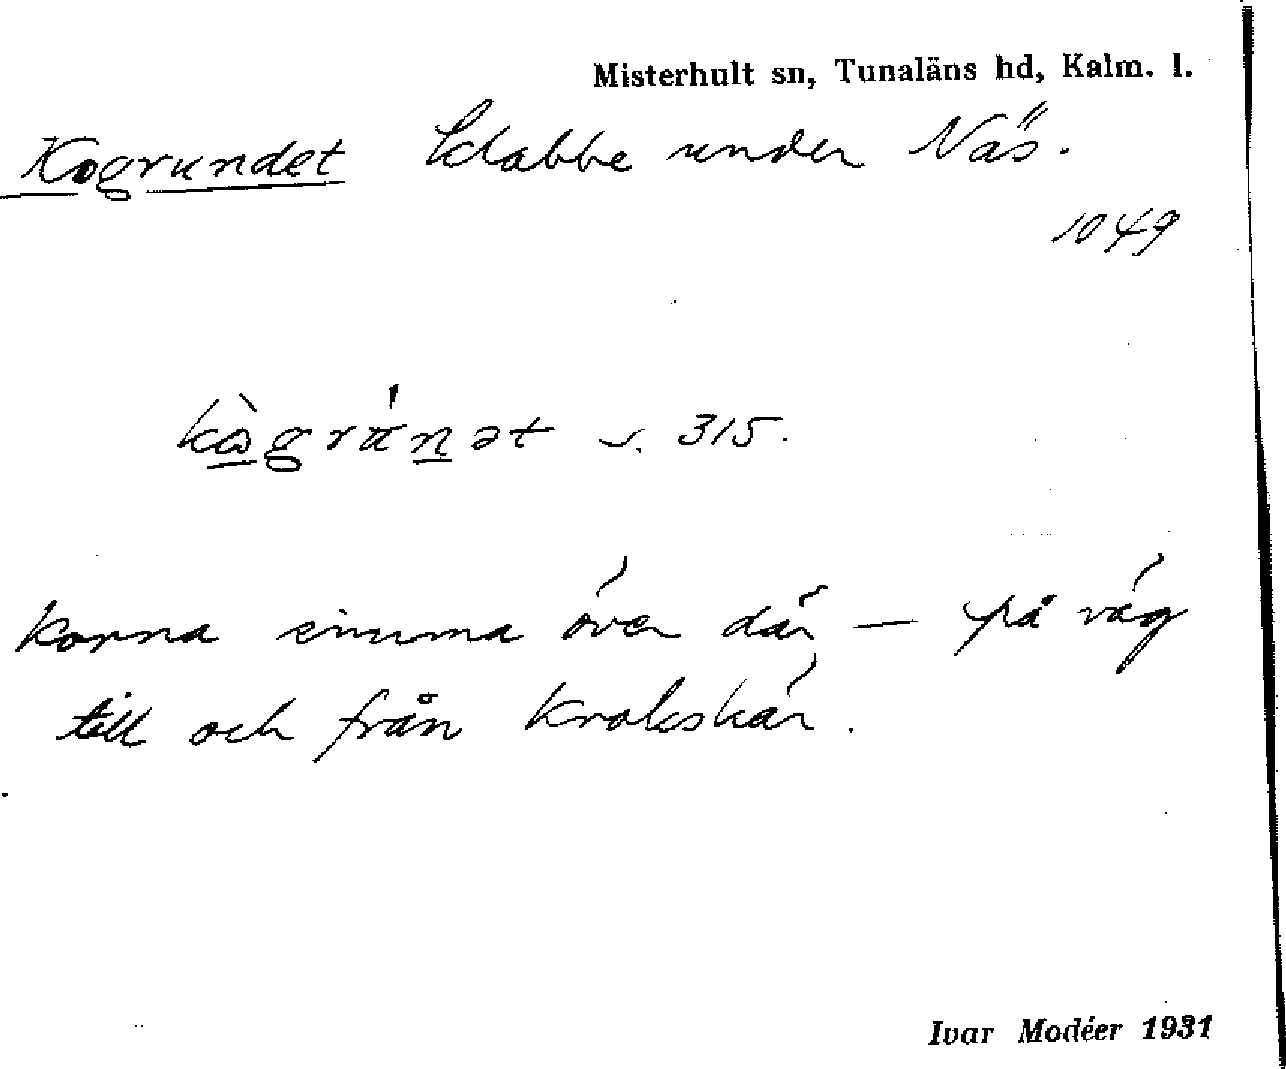 Misterhult sn, Tunaläns hd, Kalm. l.
Kogrundet klabbe under Näs.
1049
s. 315.
korna simma över där — på väg
till och från Krokskär.
Ivar Modéer 1931